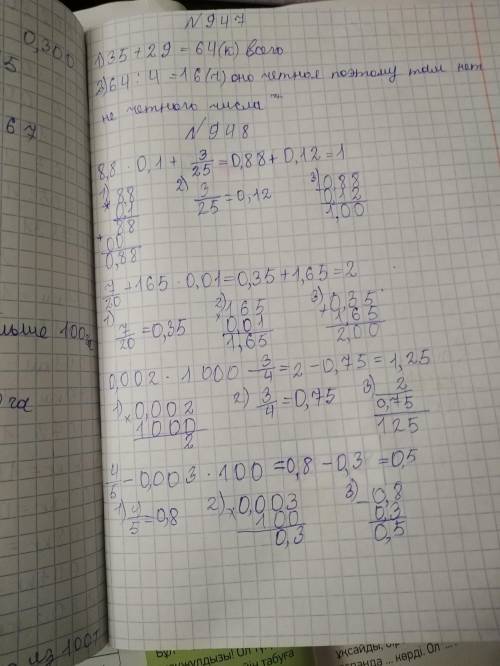 N 947
1) 35 + 29 = 64 (к) всего
2) 64 : 4 = 16 (л) оно четное поэтому там нет
не четного числа
N 948
8,8 · 0,1 + 3/25 = 0,88 + 0,12 = 1
1) 8,8
× 0,1
88
+ 00
0,88
2) 3/25 = 0,12
3) 0,88
+ 0,12
1,00
7/20 + 165 · 0,01 = 0,35 + 1,65 = 2
1) 7/20 = 0,35
2) 165
× 0,01
1,65
3) 0,35
+ 1,65
2,00
0,002 · 1 000 - 3/4 = 2 - 0,75 = 1,25
1) × 0,002
1000
2
2) 3/4 = 0,75
3) 2
0,75
125
4/5 - 0,003 · 100 = 0,8 - 0,3 = 0,5
1) 4/5 = 0,8
2) × 0,003
100
0,3
3) - 0,8
0,3
0,5
0,300
5
67
льше 100
га
из 100